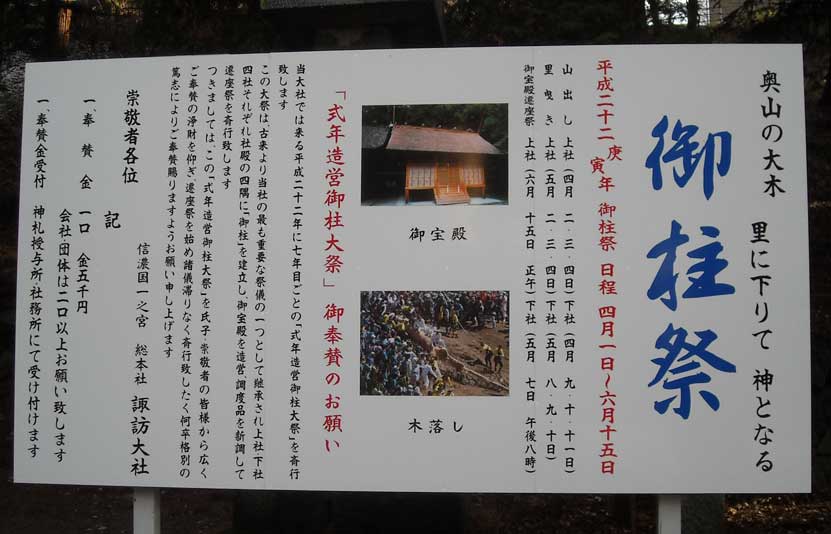 奥山の大木 里に下りて 神となる
御柱祭
平成二十二庚寅年 御柱祭 日程 四月一日～六月十五日
山出し 上社(四月 二・三・四日)下社(四月 九・十・十一日)
里曳き 上社(五月 二・三・四日)下社(五月 八・九・十日)
御宝殿遷座祭 上社(六月 十五日 正午)下社(五月 七日 午後八時)
御宝殿
木落し
「式年造営御柱大祭」御奉賛のお願い
当大社では来る平成二十二年に七年目ごとの「式年造営御柱大祭」を斉行
致します
この大祭は、古来より当社の最も重要な祭儀の一つとして継承され上社下社
四社それぞれ社殿の四隅に「御柱」を建立し、御宝殿を造営、調度品を新調して
遷座祭を斉行致します
つきましては、この「式年造営御柱大祭」を氏子・崇敬者の皆様から広く
ご奉賛の浄財を仰ぎ、遷座祭を始め諸儀滞りなく斉行致したく何卒格別の
篤志によりご奉賛賜りますようお願い申し上げます
信濃国一之宮 総本社 諏訪大社
崇敬者各位
記
一、奉賛金 一口 金五千円
会社・団体は二口以上お願い致します
一、奉賛金受付 神札授与所・社務所にて受け付けます